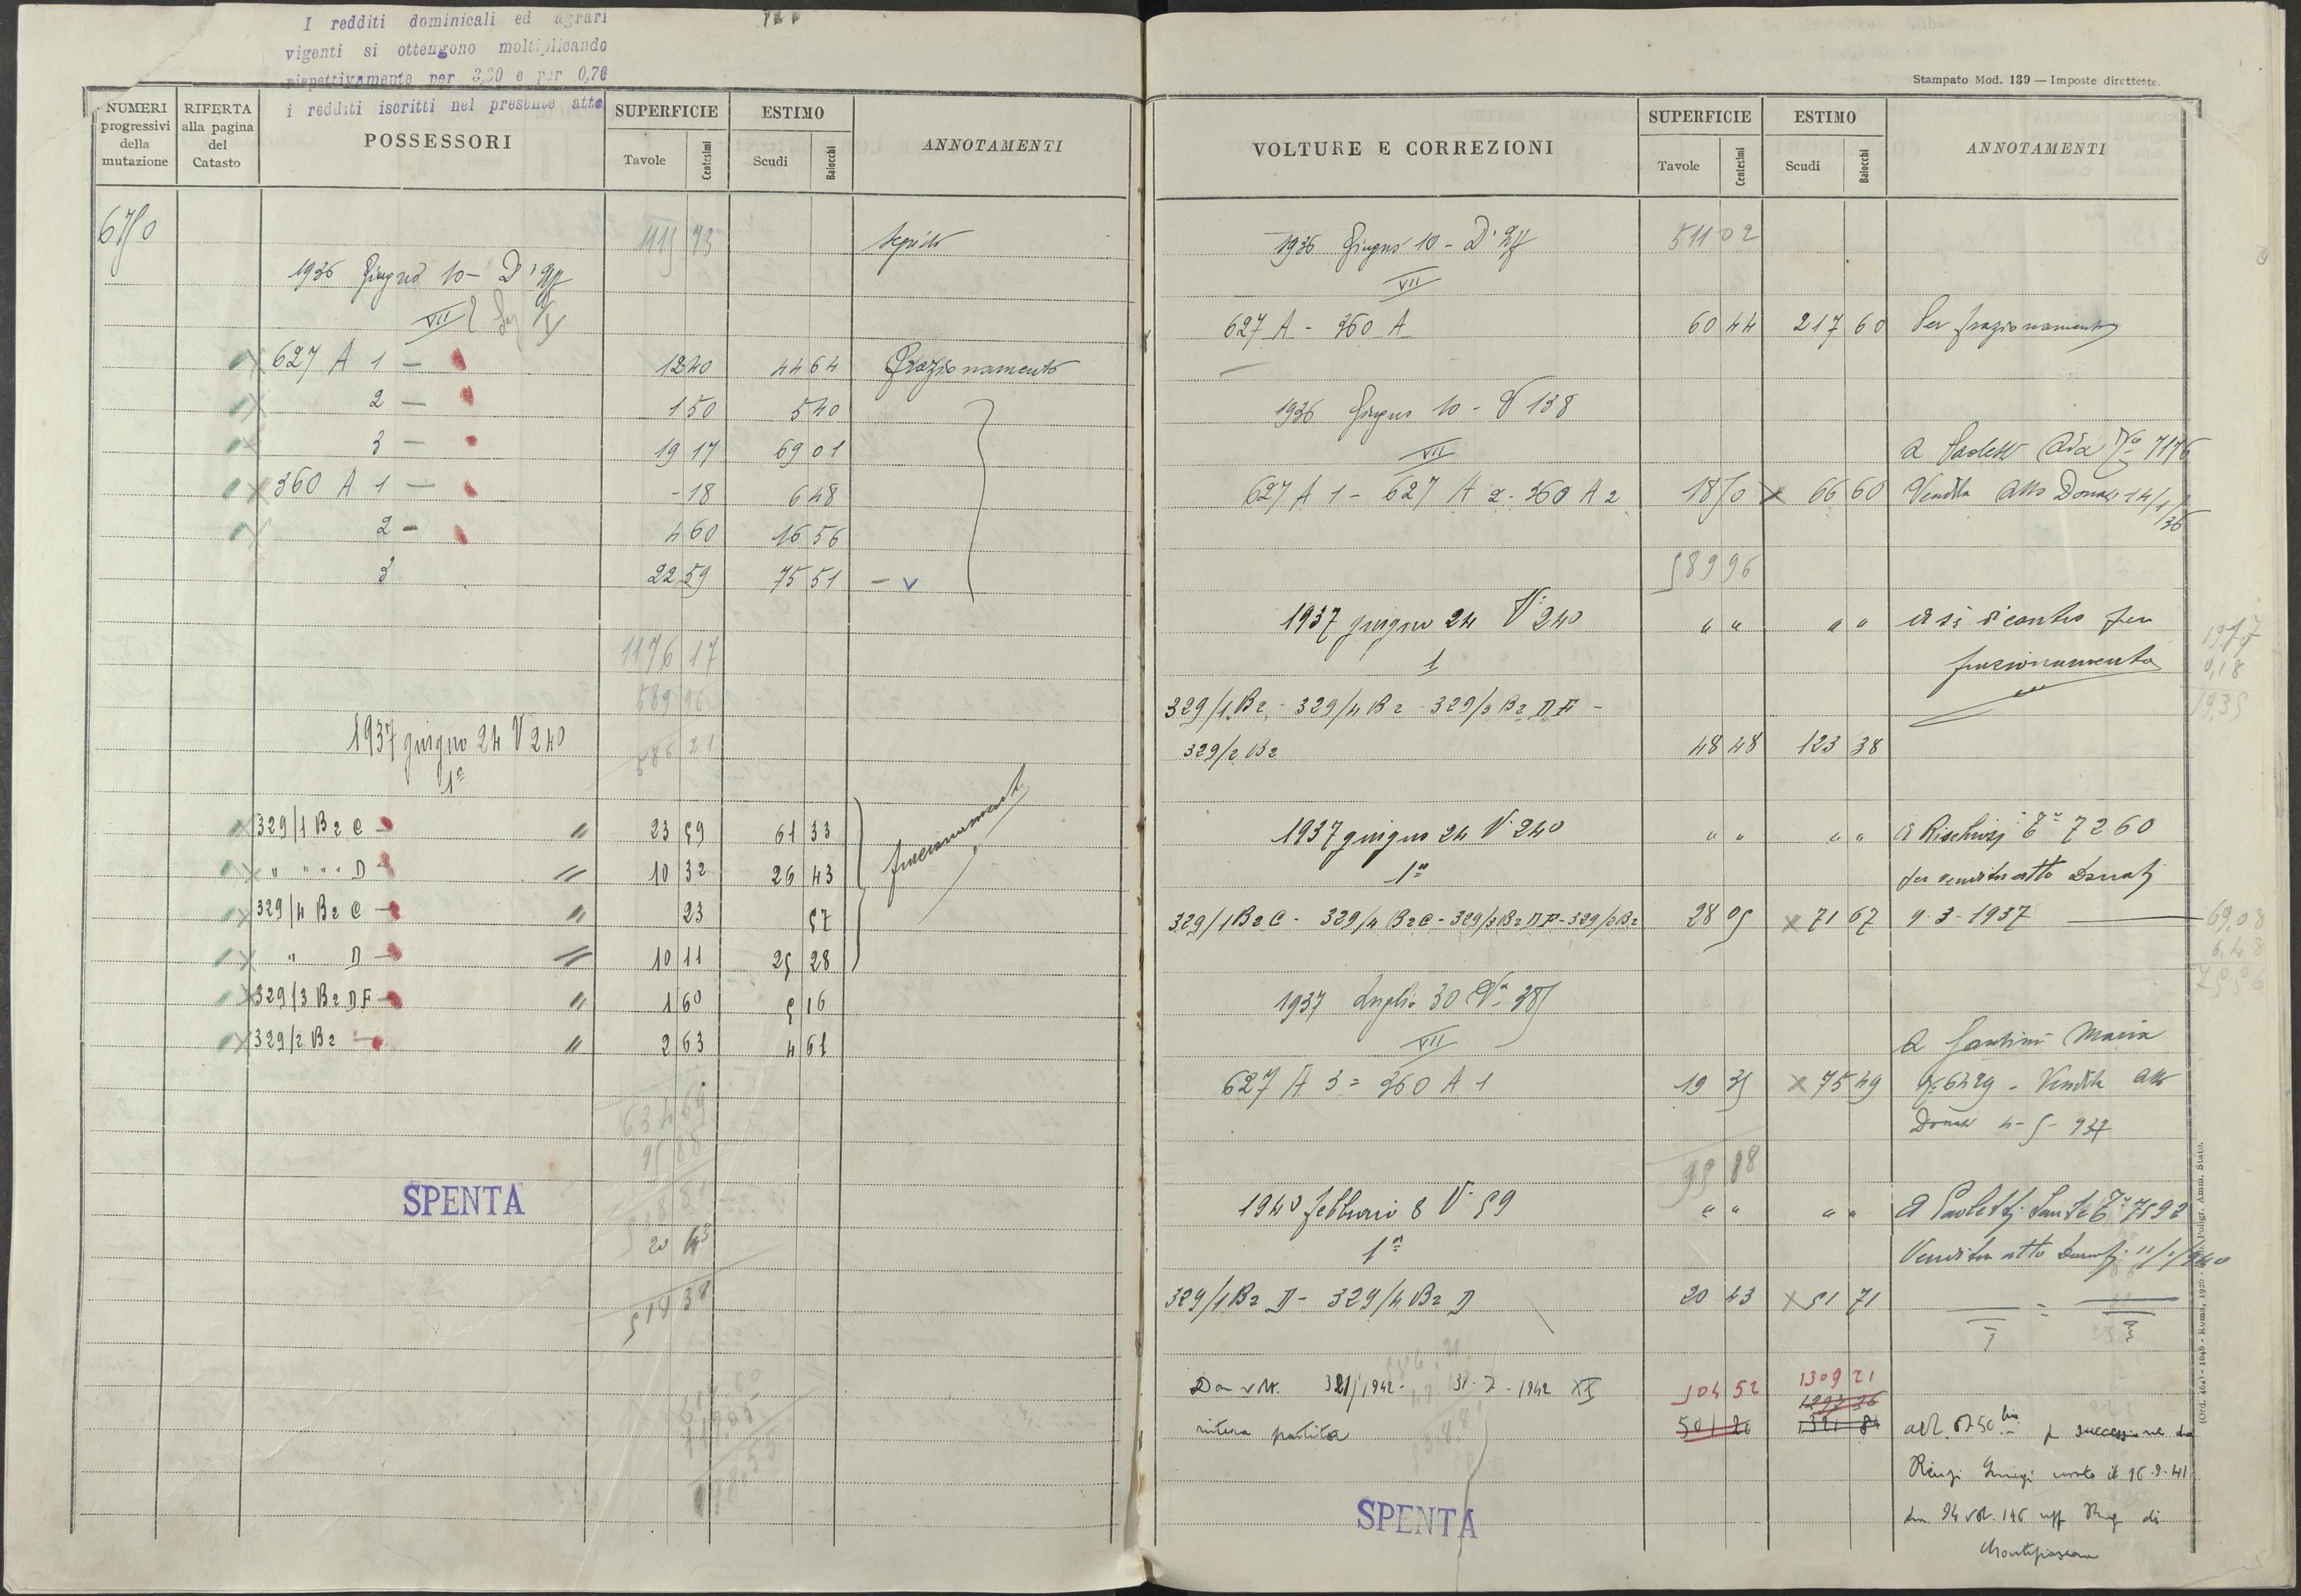 I redditi dominicali ed agrari
vigenti si ottengono moltiplicando
rispettivamente per 3,30 e per 0,70
i redditi iscritti nel presente atto
NUMERI progressivi della mutazione
RIFERTA alla pagina del Catasto
POSSESSORI
SUPERFICIE
Tavole Centesimi
ESTIMO
Scudi Baiocchi
ANNOTAMENTI
6750
1936 Giugno 10 - D'Uff
VII
627 A 1 — 12 40 44 64 Frazionamento
2 — 1 50 5 40
3 — 19 17 69 01
360 A 1 — - 18 6 48
2 - 4 60 16 56
3 22 59 75 51 — v
1176 17
589 96
586 21
1937 giugno 24 V 240
1ª
329/1 B2 C — " 23 59 61 33 frazionamento
" " " " D — " 10 32 26 43
329/4 B2 C — " 23 57
" D — " 10 11 25 28
329/3 B2 D F — " 1 60 5 16
329/2 B2 — " 2 63 4 61
634 69
SPENTA
20 43
514 38
Stampato Mod. 139 — Imposte dirette.
VOLTURE E CORREZIONI
SUPERFICIE
Tavole Centesimi
ESTIMO
Scudi Baiocchi
ANNOTAMENTI
1936 Giugno 10 - D'Uff 511 02
VII
627 A - 360 A 60 44 217 60 Per frazionamento
1936 Giugno 10 - V 138
VII
a Paoletti Ada 7176
627 A 1 - 627 A 2 - 360 A 2 18 50 x 66 60 Vendita atto Donati 14/1/36
589 96
1937 giugno 24 V 240 " " " " a si di contro per
1 frazionamento
19,17
0,18
19,35
329/1 B2 - 329/4 B2 - 329/3 B2 D F -
329/2 B2 48 48 123 38
1937 giugno 24 V 240 " " " " a 7260
1ª per vendita atto Donati
329/1 B2 C - 329/4 B2 C - 329/3 B2 D F - 329/2 B2 28 05 x 71 67 9-3-1937
69,08
6,48
1937 Luglio 30 V 385
VII
a Santini Maria
627 A 3 = 360 A 1 19 35 x 75 49 6429 - Vendita atto
Donati 4-5-937
95 88
1940 febbraio 8 V 59 " " " " a Paoletti Sante 7592
1ª Vendita atto Donati 11/1/940
329/1 B2 D - 329/4 B2 D 20 43 x 51 71
Da volt. 321/1942 - 31-7-1942 XX 504 52 1309 21
intera partita 501 20 1321 84 all. 6750 bis p successione da
Renzi Luigi morto il 16.9.41
den 94 vol. 146 uff Reg di
Montefiascone
SPENTA